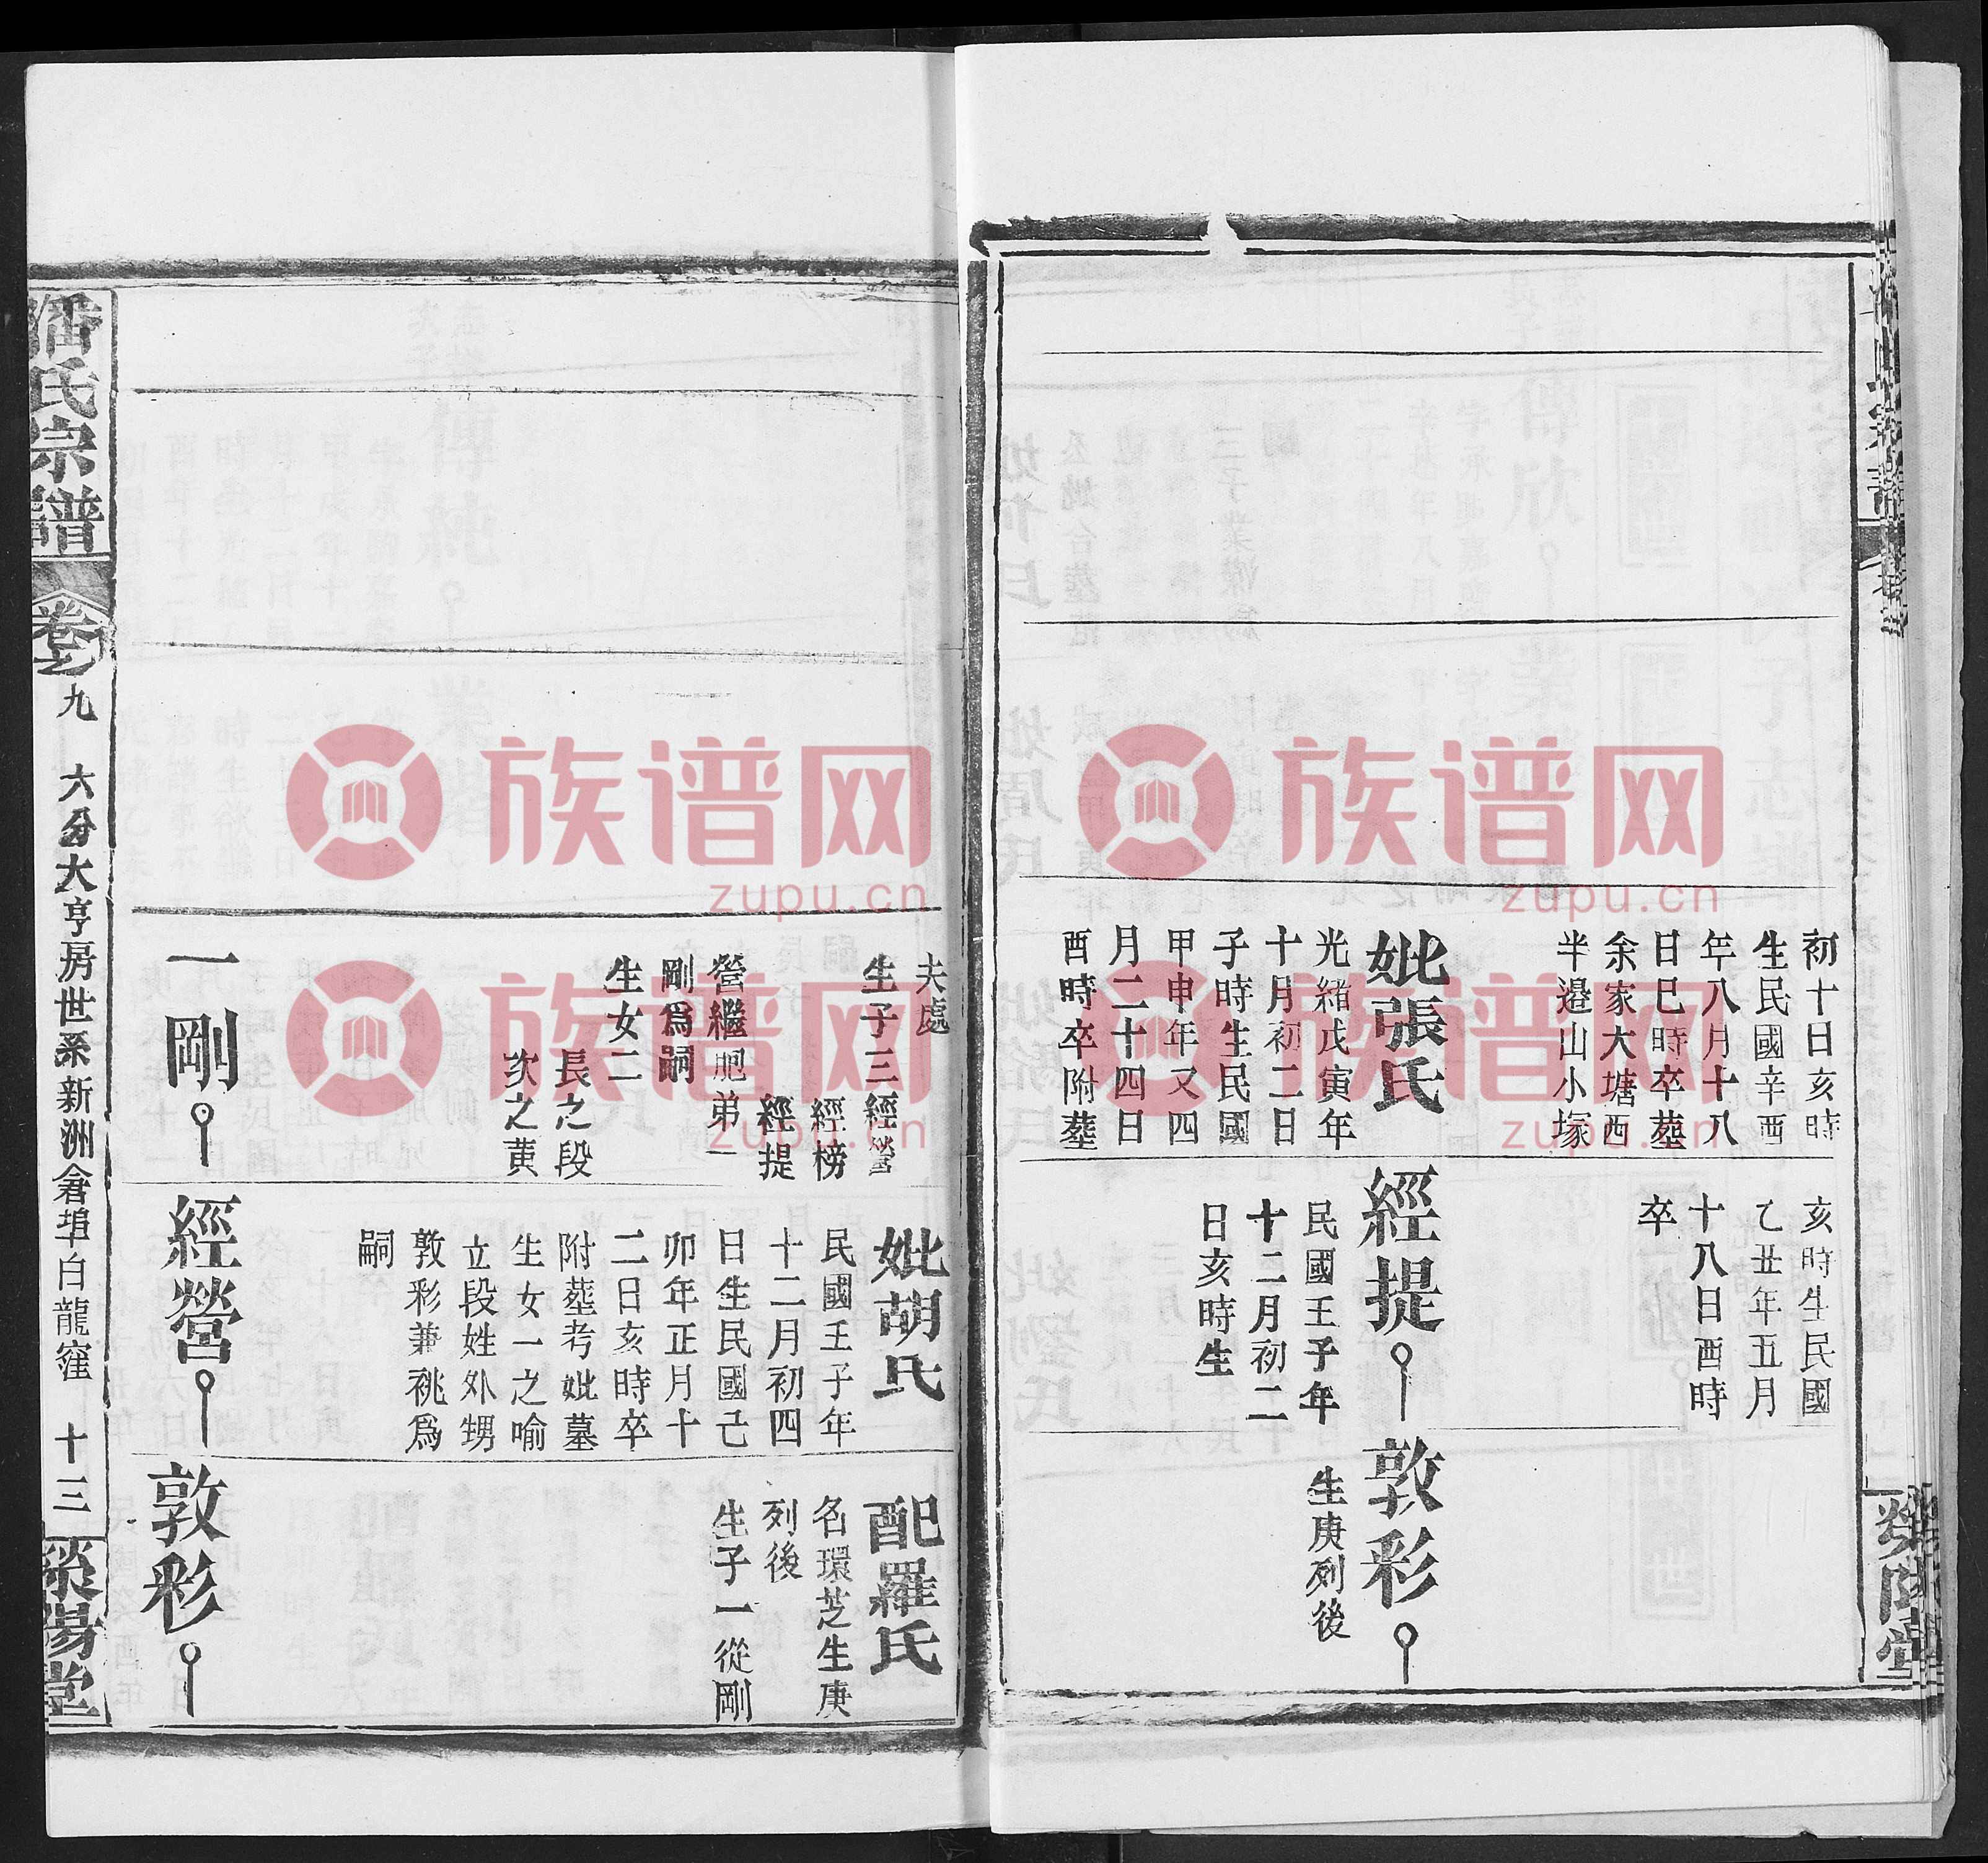 初十日亥時
生民國辛酉
年八月十八
日巳時卒塟
余家大塘西
半邉山小塚
妣張氏
光緒戊寅年
十月初二日
子時生民國
甲申年又四
月二十四日
酉時卒附塟
亥時生民國
乙丑年五月
十八日酉時
卒
經提
民國壬子年
十二月初二
日亥時生
敦彩
生庚列後
夫處
生子三經營
經榜
經提
營繼胞弟一
剛爲嗣
生女二
長之段
次之黄
一剛
妣胡氏
民國壬子年
十二月初四
日生民國己
卯年正月十
二日亥時卒
附塟考妣墓
生女一之喻
立段姓外甥
敦彩兼祧爲
嗣
經營
配羅氏
名環芝生庚
列後
生子一從剛
敦彩
潘氏宗譜
卷之
九
六分大亨房世系新洲倉埠白龍窪
十三
滎陽堂
族谱网
zupu.cn
族谱网
zupu.cn
族谱网
zupu.cn
族谱网
zupu.cn